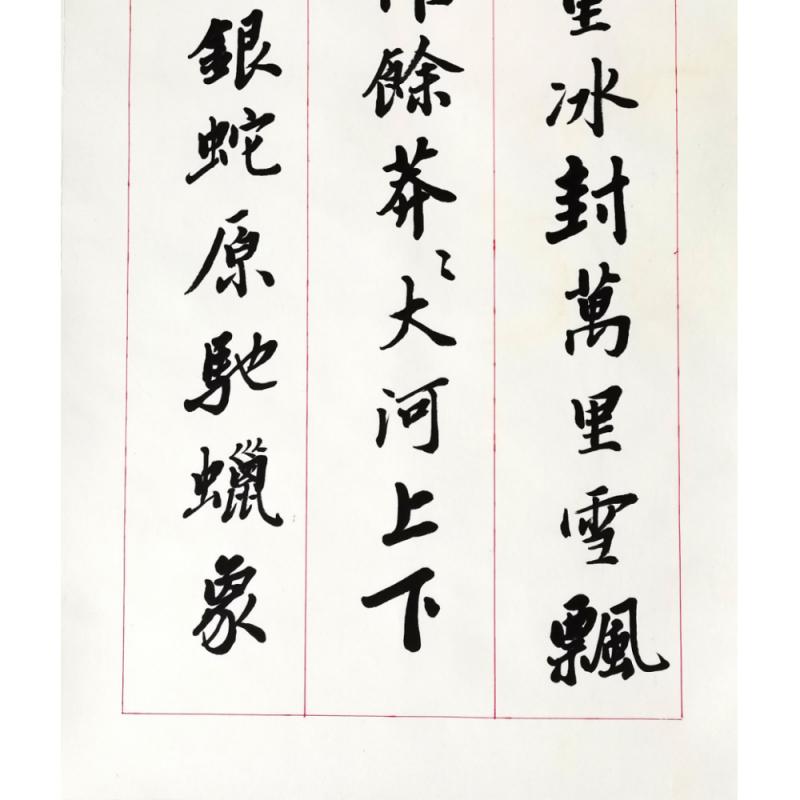 里冰封萬里雪飄
餘莽〻大河上下
銀蛇原馳蠟象